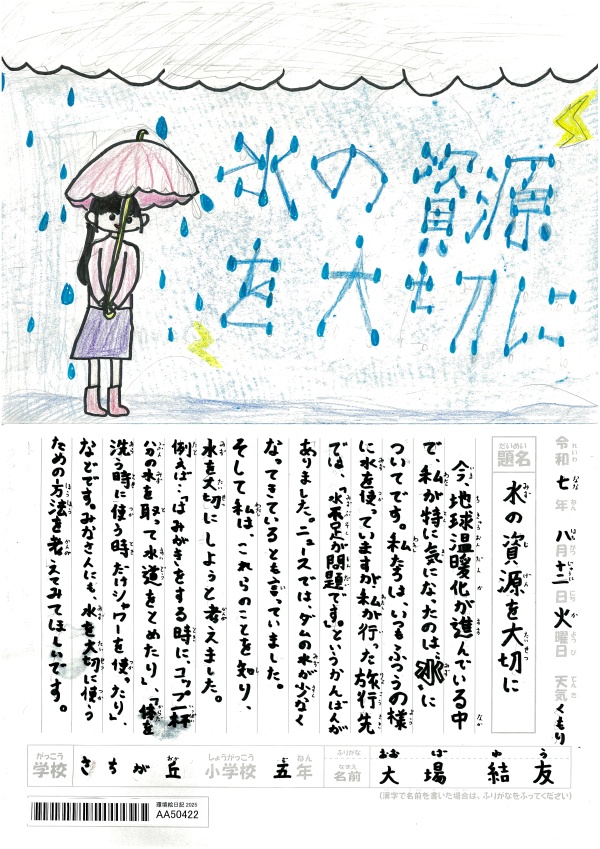 水の資源
を大切に
令和七年八月十二日火曜日 天気くもり
題名 水の資源を大切に
今、地球温暖化が進んでいる中
で、私が特に気になったのは、水に
ついてです。私たちは、いつもふつうの様
に水を使っていますが、私が行った旅行先
では、「水不足が問題です。」というかんばんが
ありました。ニュースでは、ダムの水が少なく
なってきているとも言っていました。
そして私は、これらのことを知り、
水を大切にしようと考えました。
例えば…「はみがきをする時にコップ一杯
分の水を取って水道をとめたり」、「体を
洗う時に使う時だけシャワーを使ったり」、
などです。みなさんにも、水を大切に使う
ための方法を考えてみてほしいです。
学校 さちが丘 小学校 五年 名前 大場 結友
(漢字で名前を書いた場合は、ふりがなをふってください)
環境絵日記 2025
AA50422